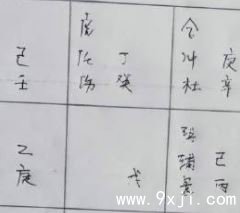 己
壬
虎
伤
丁
癸
合
冲
杜
庚
辛
乙
庚
戊
辅
景
己
丙
www.9xji.com